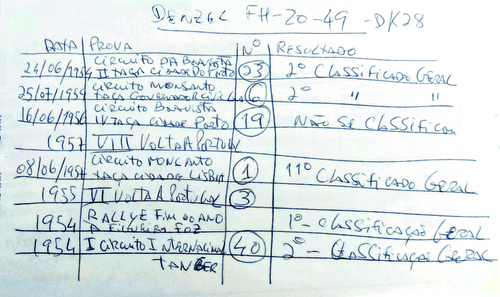 DENZEL FH-20-49 - DK28
DATA PROVA Nº RESULTADO
CIRCUITO DA BOAVISTA
24/06/1954 II TAÇA CIDADE DO PORTO 23 2º CLASSIFICADO GERAL
CIRCUITO MONSANTO
25/07/1954 TAÇA GOVERNADOR CIVIL 6 2º " "
CIRCUITO BOAVISTA
16/06/1956 IV TAÇA CIDADE PORTO 19 NÃO SE CLASSIFICOU
1957 VIII VOLTA A PORTUGAL
CIRCUITO MONSANTO
08/06/1957 TAÇA CIDADE LISBOA 1 11º CLASSIFICADO GERAL
1955 VI VOLTA A PORTUGAL 3
RALLYE FIM DO ANO
1954 A FIGUEIRA FOZ 1º - CLASSIFICAÇÃO GERAL
1954 I CIRCUITO INTERNACIONAL 40 2º - CLASSIFICAÇÃO GERAL
TANGER